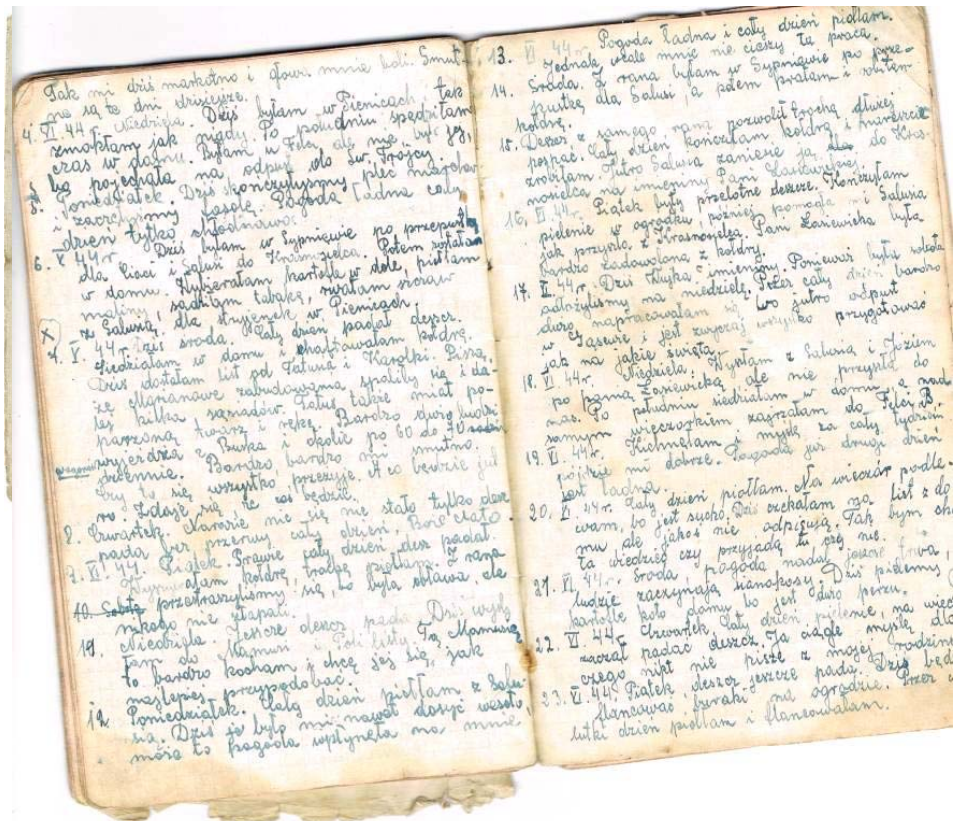 Tak mi dziś markotno i głowa mnie boli. Smut-
ne są te dni dzisiejsze.
4. VI 44 r. Niedziela. Dziś byłam w Pienicach, tak
zmokłam jak nigdy. Po południu spędziłam
czas w domu. Byłam u Felci, ale nie było jej,
bo pojechała na odpust do Św. Trójcy.
5. Poniedziałek. Dziś skończyłyśmy pleć
i zaczęłyśmy fasolę. Pogoda ładna cały
dzień tylko chłodnawo.
6. V 44 r. Dziś byłam w Sypniewie po przepustkę
dla Cioci i Salusi do Krasnosielca. Potem zostałam
w domu. Wybierałam kartofle w dole, pieliłam
maliny, sadziłam tabakę, rwałam szczaw
z Salusią, dla stryjenek w Pienicach.
X
7. V. 44 r. Dziś środa. Cały dzień padał deszcz.
Siedziałam w domu i chaftowałam kołdrę.
Dziś dostałam list od Tatusia i Karolki. Piszą,
że Marianowe zabudowania spaliły się i da-
lej kilka sąsiadów. Tatuś także miał po-
parzoną twarz i rękę. Bardzo dużo ludzi
wyjeżdża z Buska i okolic po 60 do 70
dziennie. Bardzo, bardzo mi smutno.
Czy to się wszystko przeżyje. A co będzie już
Zdaje się, że coś będzie.
8. Czwartek. Narazie nic się nie stało tylko desz
pada bez przerwy cały dzień. Boże Ciało.
7. VI. 44 Piątek. Prawie cały dzień desz padał.
kołdrę, trochę piołłam. Z rana
10. Sobota przestraszyliśmy się, bo była obława, ale
nikogo nie złapali.
19. Niedziela. Jeszcze deszcz pada. Dziś wysła
łam do Mamusi i Poli listy. Tą Mamusię
to bardzo kocham i chcę jej się, jak
najlepiej przypodobać.
12. Poniedziałek. Cały dzień piołłam z Salu
sią. Dziś to było mi nawet dosyć wesoło,
może to pogoda wpłynęła na mnie
13. VI 44 r. Pogoda ładna i cały dzień piołłam.
Jednak wcale mnie nie cieszy ta praca.
14. Środa. Z rana byłam w Sypniewie po prze-
pustkę dla Salusi, a potem prałam i
kołdrę.
15. Deszcz z samego rana pozwolił trochę dłużej
pospać. Cały dzień kończyłam kołdrę i nareszcie
zrobiłam. Jutro Salusia zaniesie ją do Kras
nosielca na imieniny Pani
16. VI 44 r. Piątek były przelotne deszcze. Kończyłam
pielenie w ogródku później pomogła mi Salusia
jak przyszła z Krasnosielca. Pani Łasiewicka była
bardzo zadowolona z kołdry.
17. VI. 44 r. Dziś imieniny. Ponieważ była sobota
odłożyliśmy na niedzielę. Przez cały dzień bardzo
dużo napracowałam się bo jutro odpust
w Gąsewie i jest zwyczaj wszystko przygotować
jak na jakie święta.
18. VI 44 r. Niedziela. Wyszłam z Salusią i Józiem
po panną Łasiewicką, ale nie przyszła do
nas. Po południu siedziałam w domu, a nad
samym wieczorkiem zajrzałam do Felci B.
19. VI 44 r. Kichnęłam i myślę za cały tydzień
pójdzie mi dobrze. Pogoda już drugi dzień
jest ładna.
20. VI. 44 r. Cały dzień piołłam. Na wieczór podle-
wam, bo jest sucho. Dziś czekałam na list z do
mu ale jakoś nie odpisują. Tak bym chcia
ła wiedzieć czy przyjadą tu czy nie.
21. VI 44 r. Środa pogoda nadal jeszcze trwa,
ludzie zaczynają sianokosy. Dziś pielemy
kartofle koło domu bo jest dużo perzu.
22. VI 44. Czwartek. Cały dzień pielenie, na wiecz
zaczął padać deszcz. Ja ciągle myślę, dla
czego nikt nie pisze z mojej rodziny
23. VI 44 r. Piątek, deszcz jeszcze pada. Dziś będę
flancować buraki na ogrodzie. Przez c
lutki dzień piołłam i flancowałam.